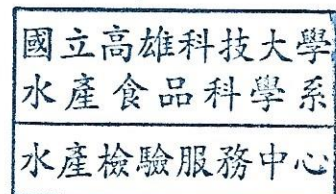 國立高雄科技大學
水產食品科學系
水產檢驗服務中心